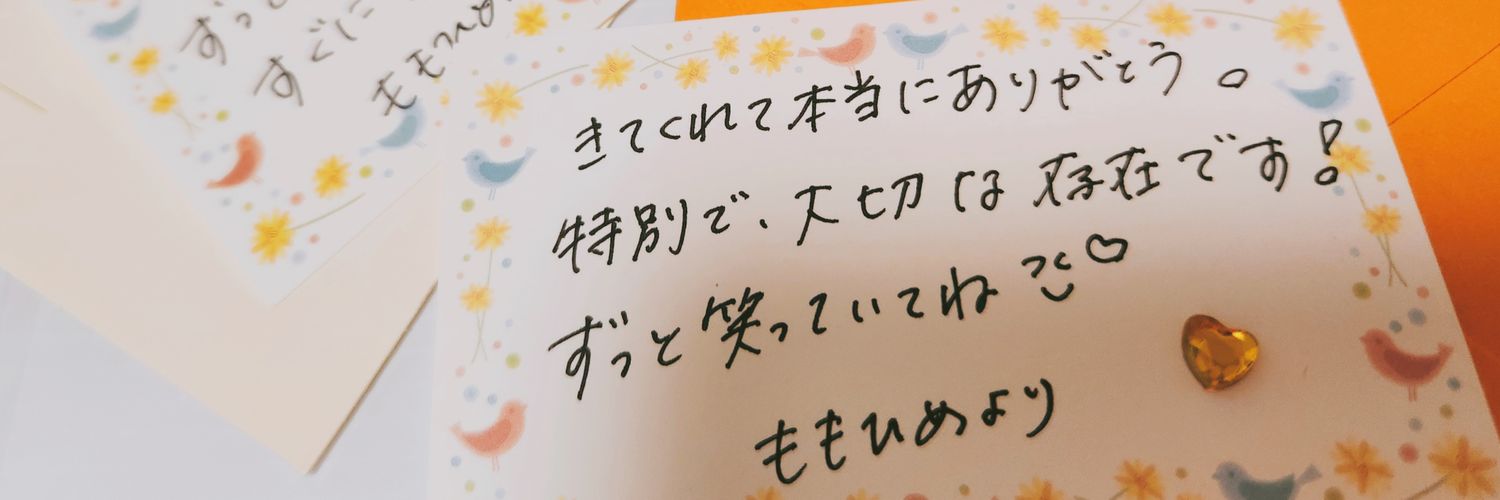 ずっと
すぐに
ももひめ
きてくれて本当にありがとう。
特別で、大切な存在です!
ずっと笑っていてね♡
ももひめより